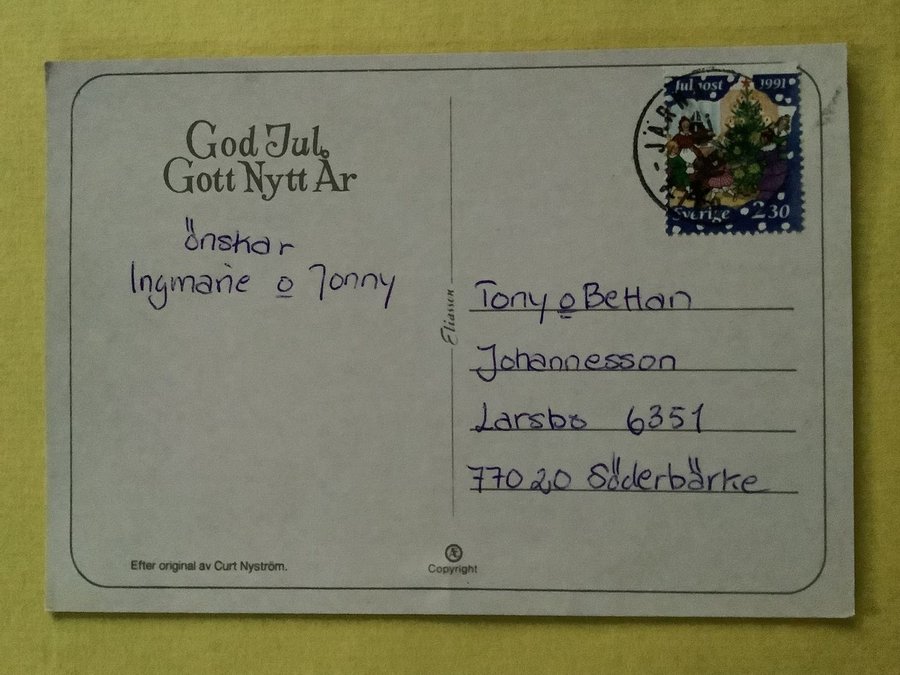 God Jul,
Gott Nytt År
önskar
Ingmarie o Jonny
Efter original av Curt Nyström.
Eliasson
Æ
Copyright
Julpost 1991
Sverige 2 30
JÄR
Tony o Bettan
Johannesson
Larsbo 6351
770 20 Söderbärke